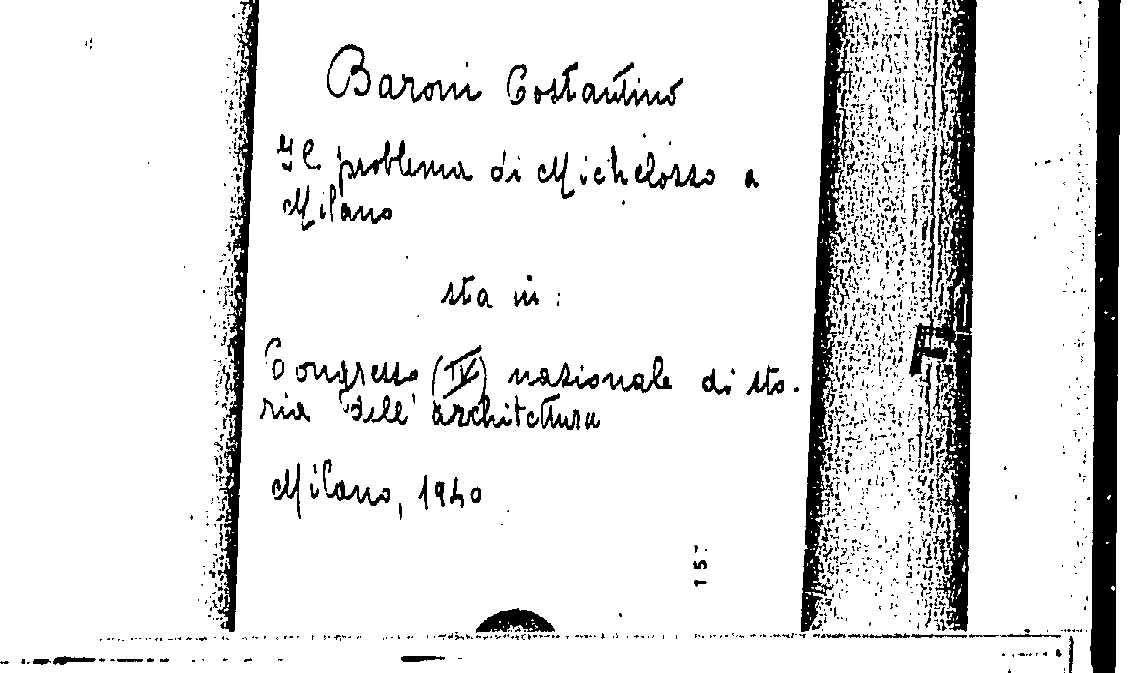 Baroni Costantino
Il problema di Michelozzo a
Milano
sta in:
Congresso (IV) nazionale di sto-
ria dell'architettura
Milano, 1940
F
157